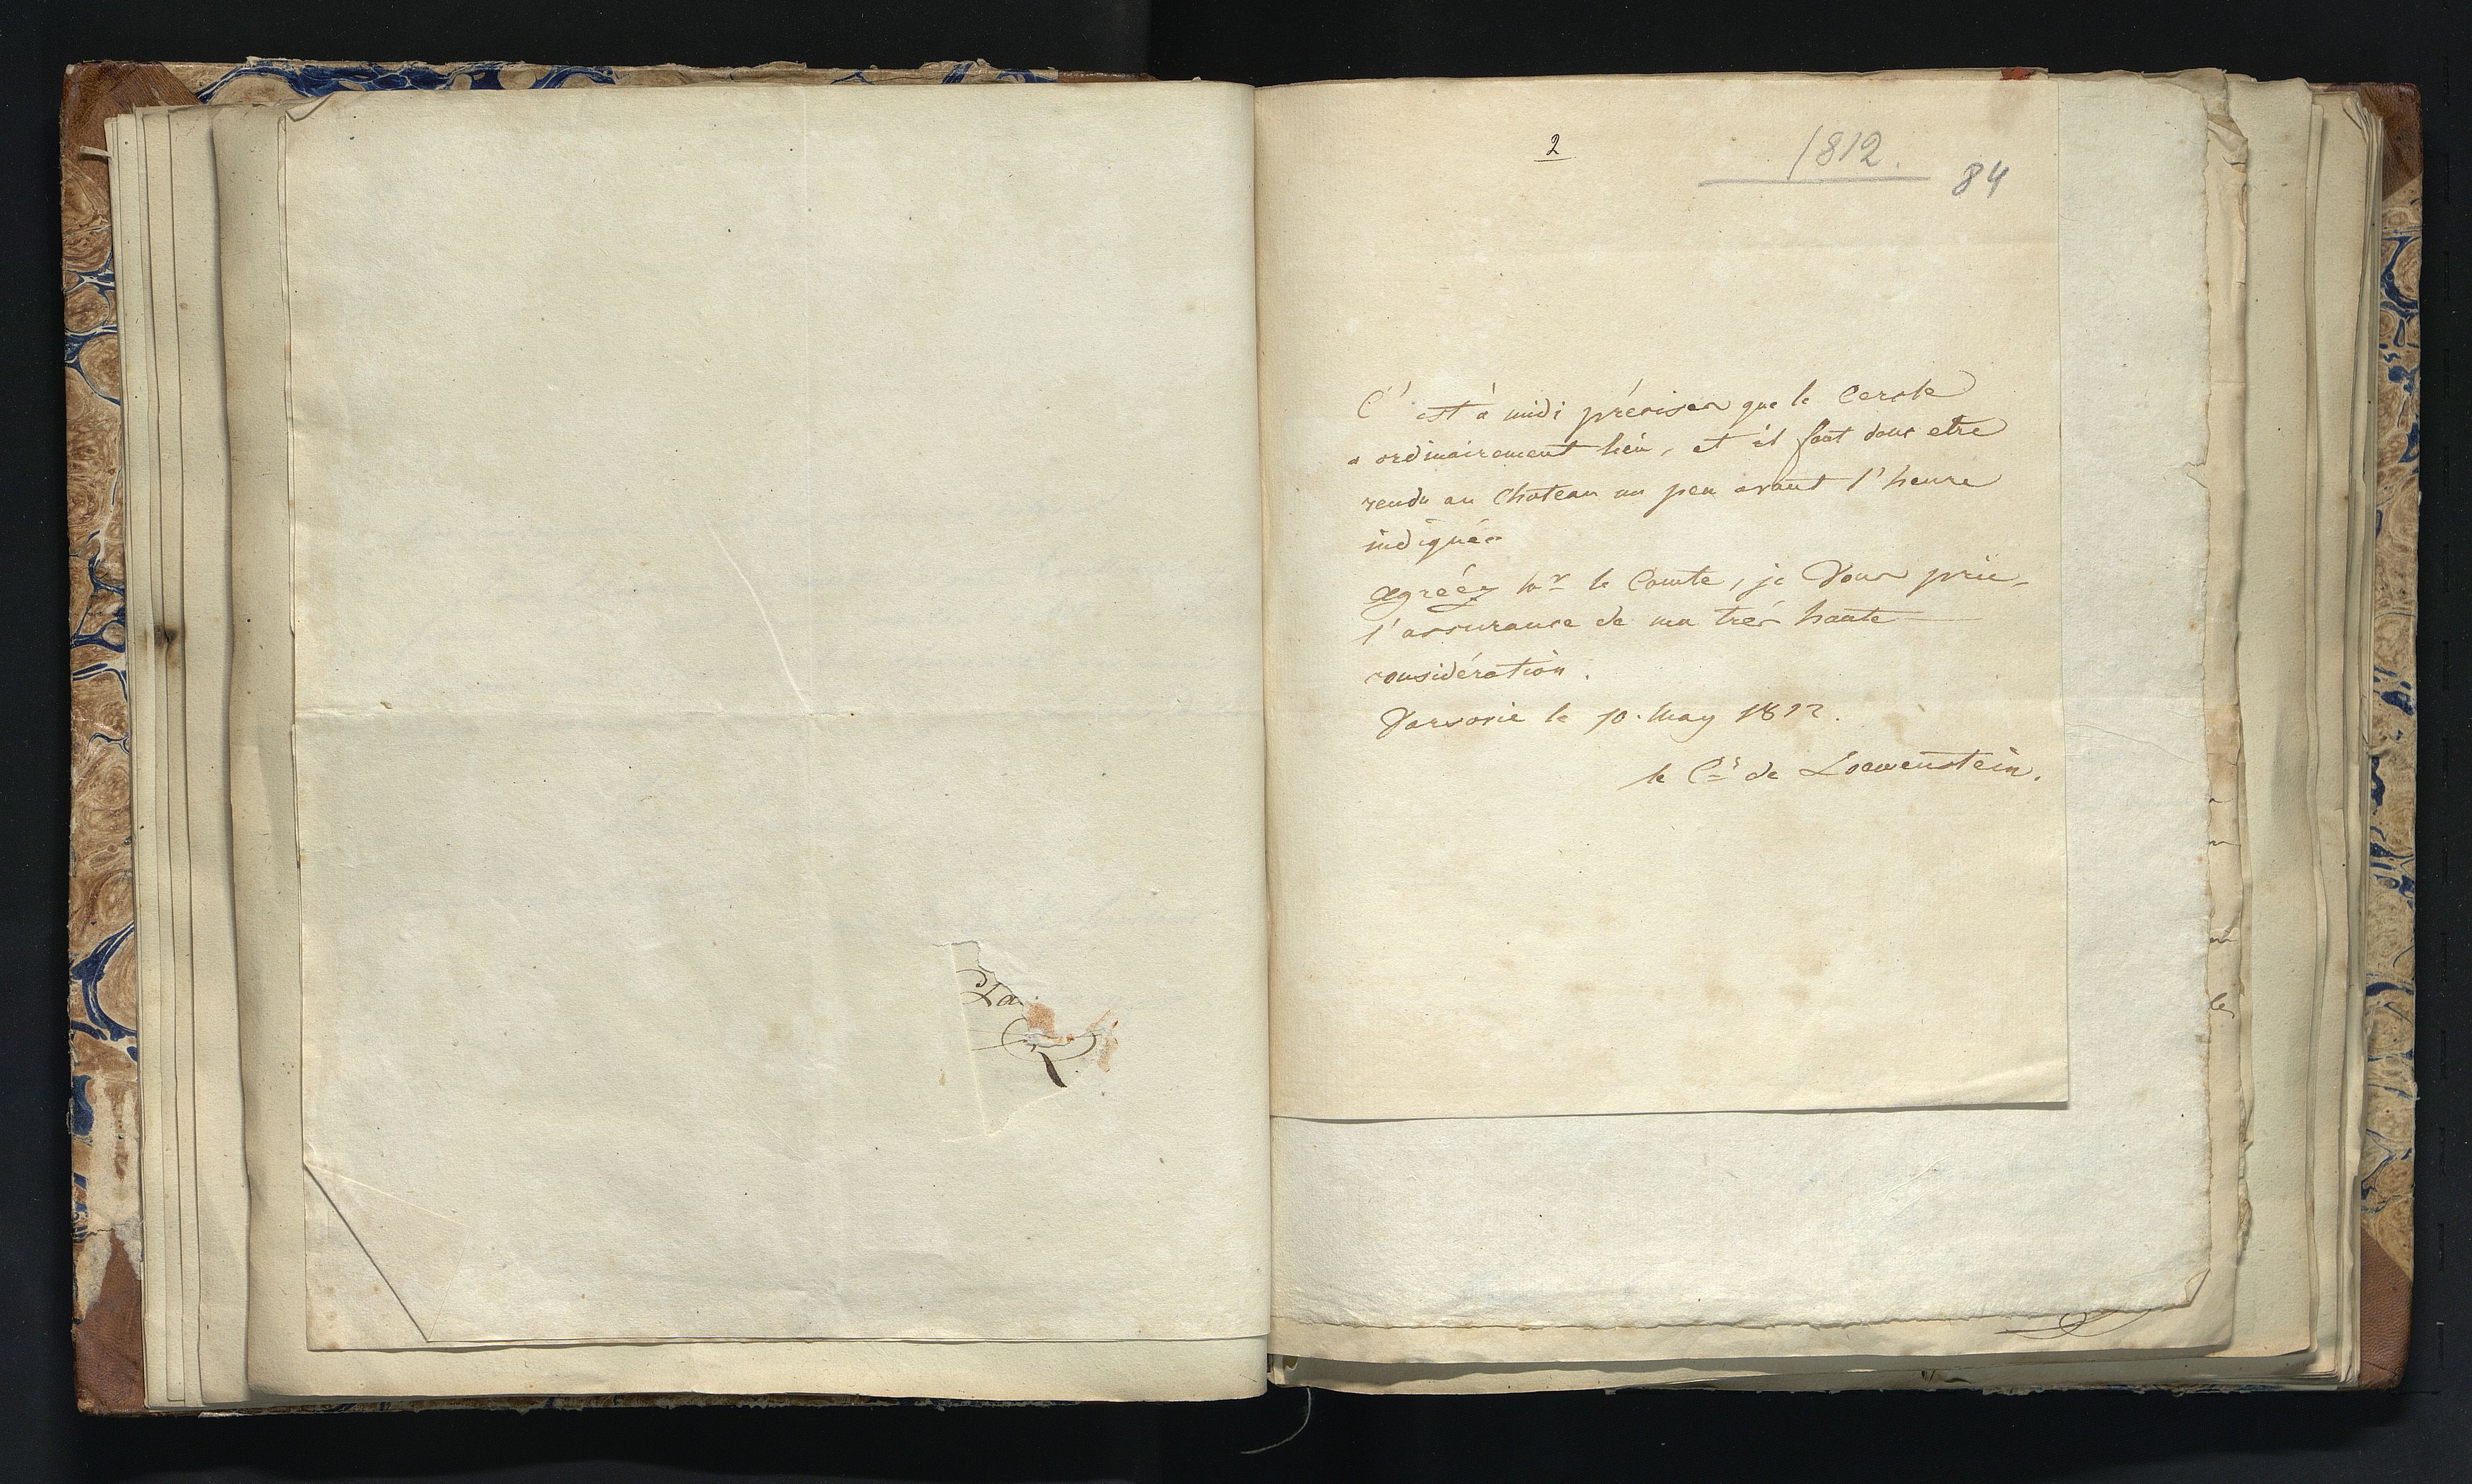 2
1812.
84
C'est à midi précises que le Cercle
a ordinairement lieu, et il faut donc etre
rendu au Chateau un peu avant l'heure
indiquée
Agréèz Mr le Comte, je Vous prie,
l'assurance de ma trés haute
considération.
Varsovie le 10. May 1812.
le Cte de Loewenstein.